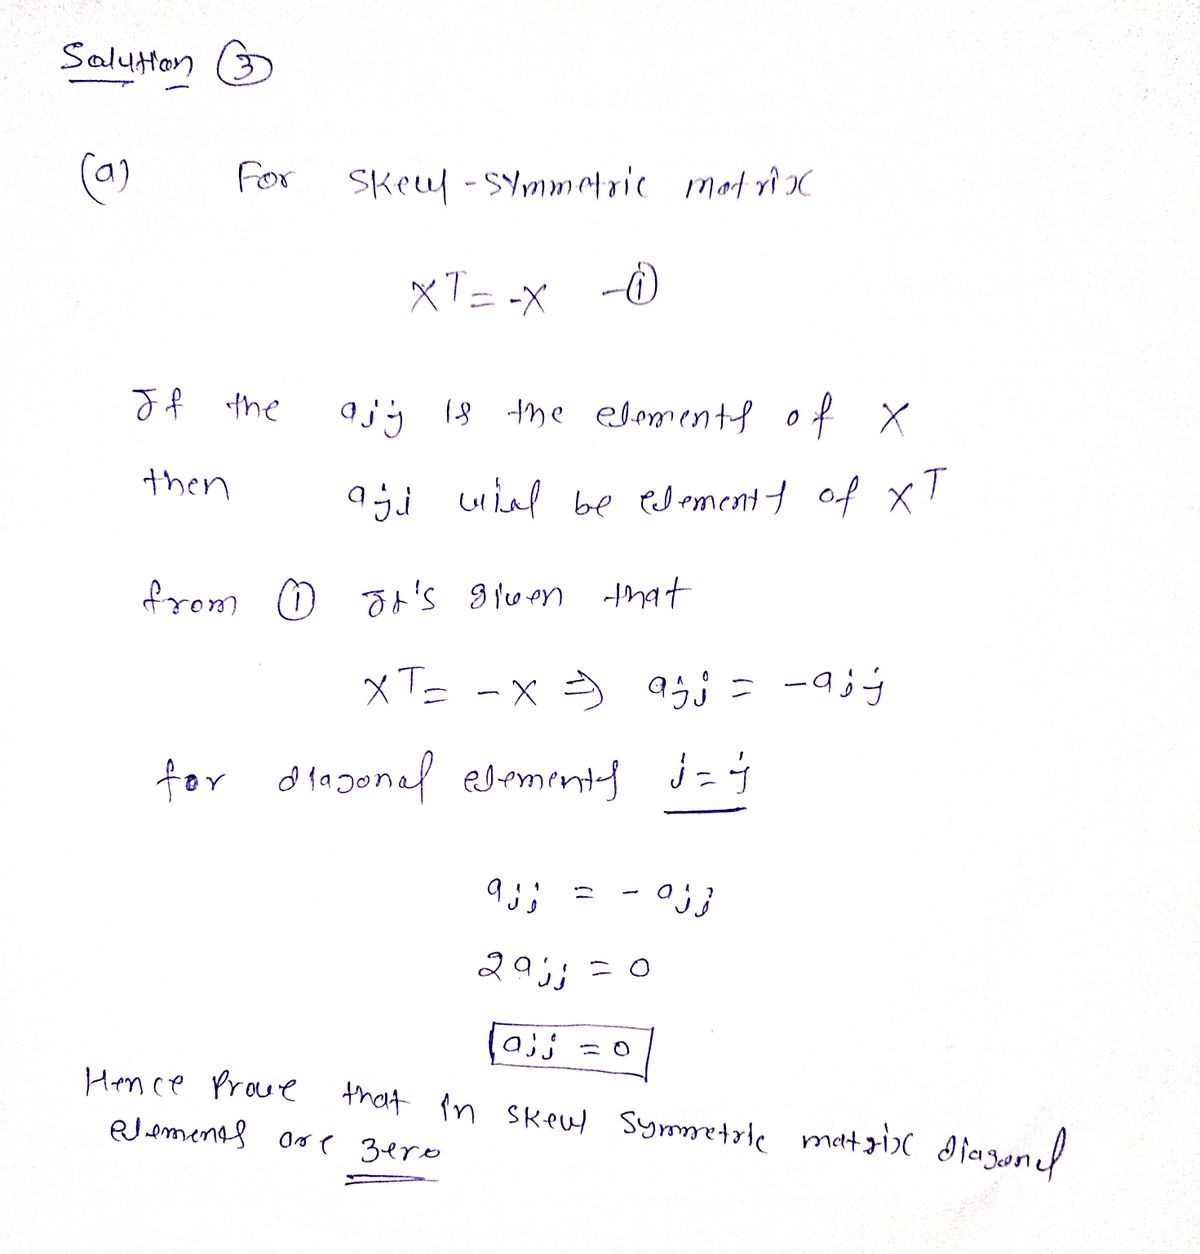 Solution ③
(a) For skew-symmetric matrix
X^T = -X -①
If the aij is the elements of X
then aji will be element of X^T
from ① It's given that
X^T = -X ⇒ aji = -aij
for diagonal elements i = j
aii = - aii
2aii = 0
aii = 0
Hence Prove that in skew symmetric matrix diagonal
elements are zero